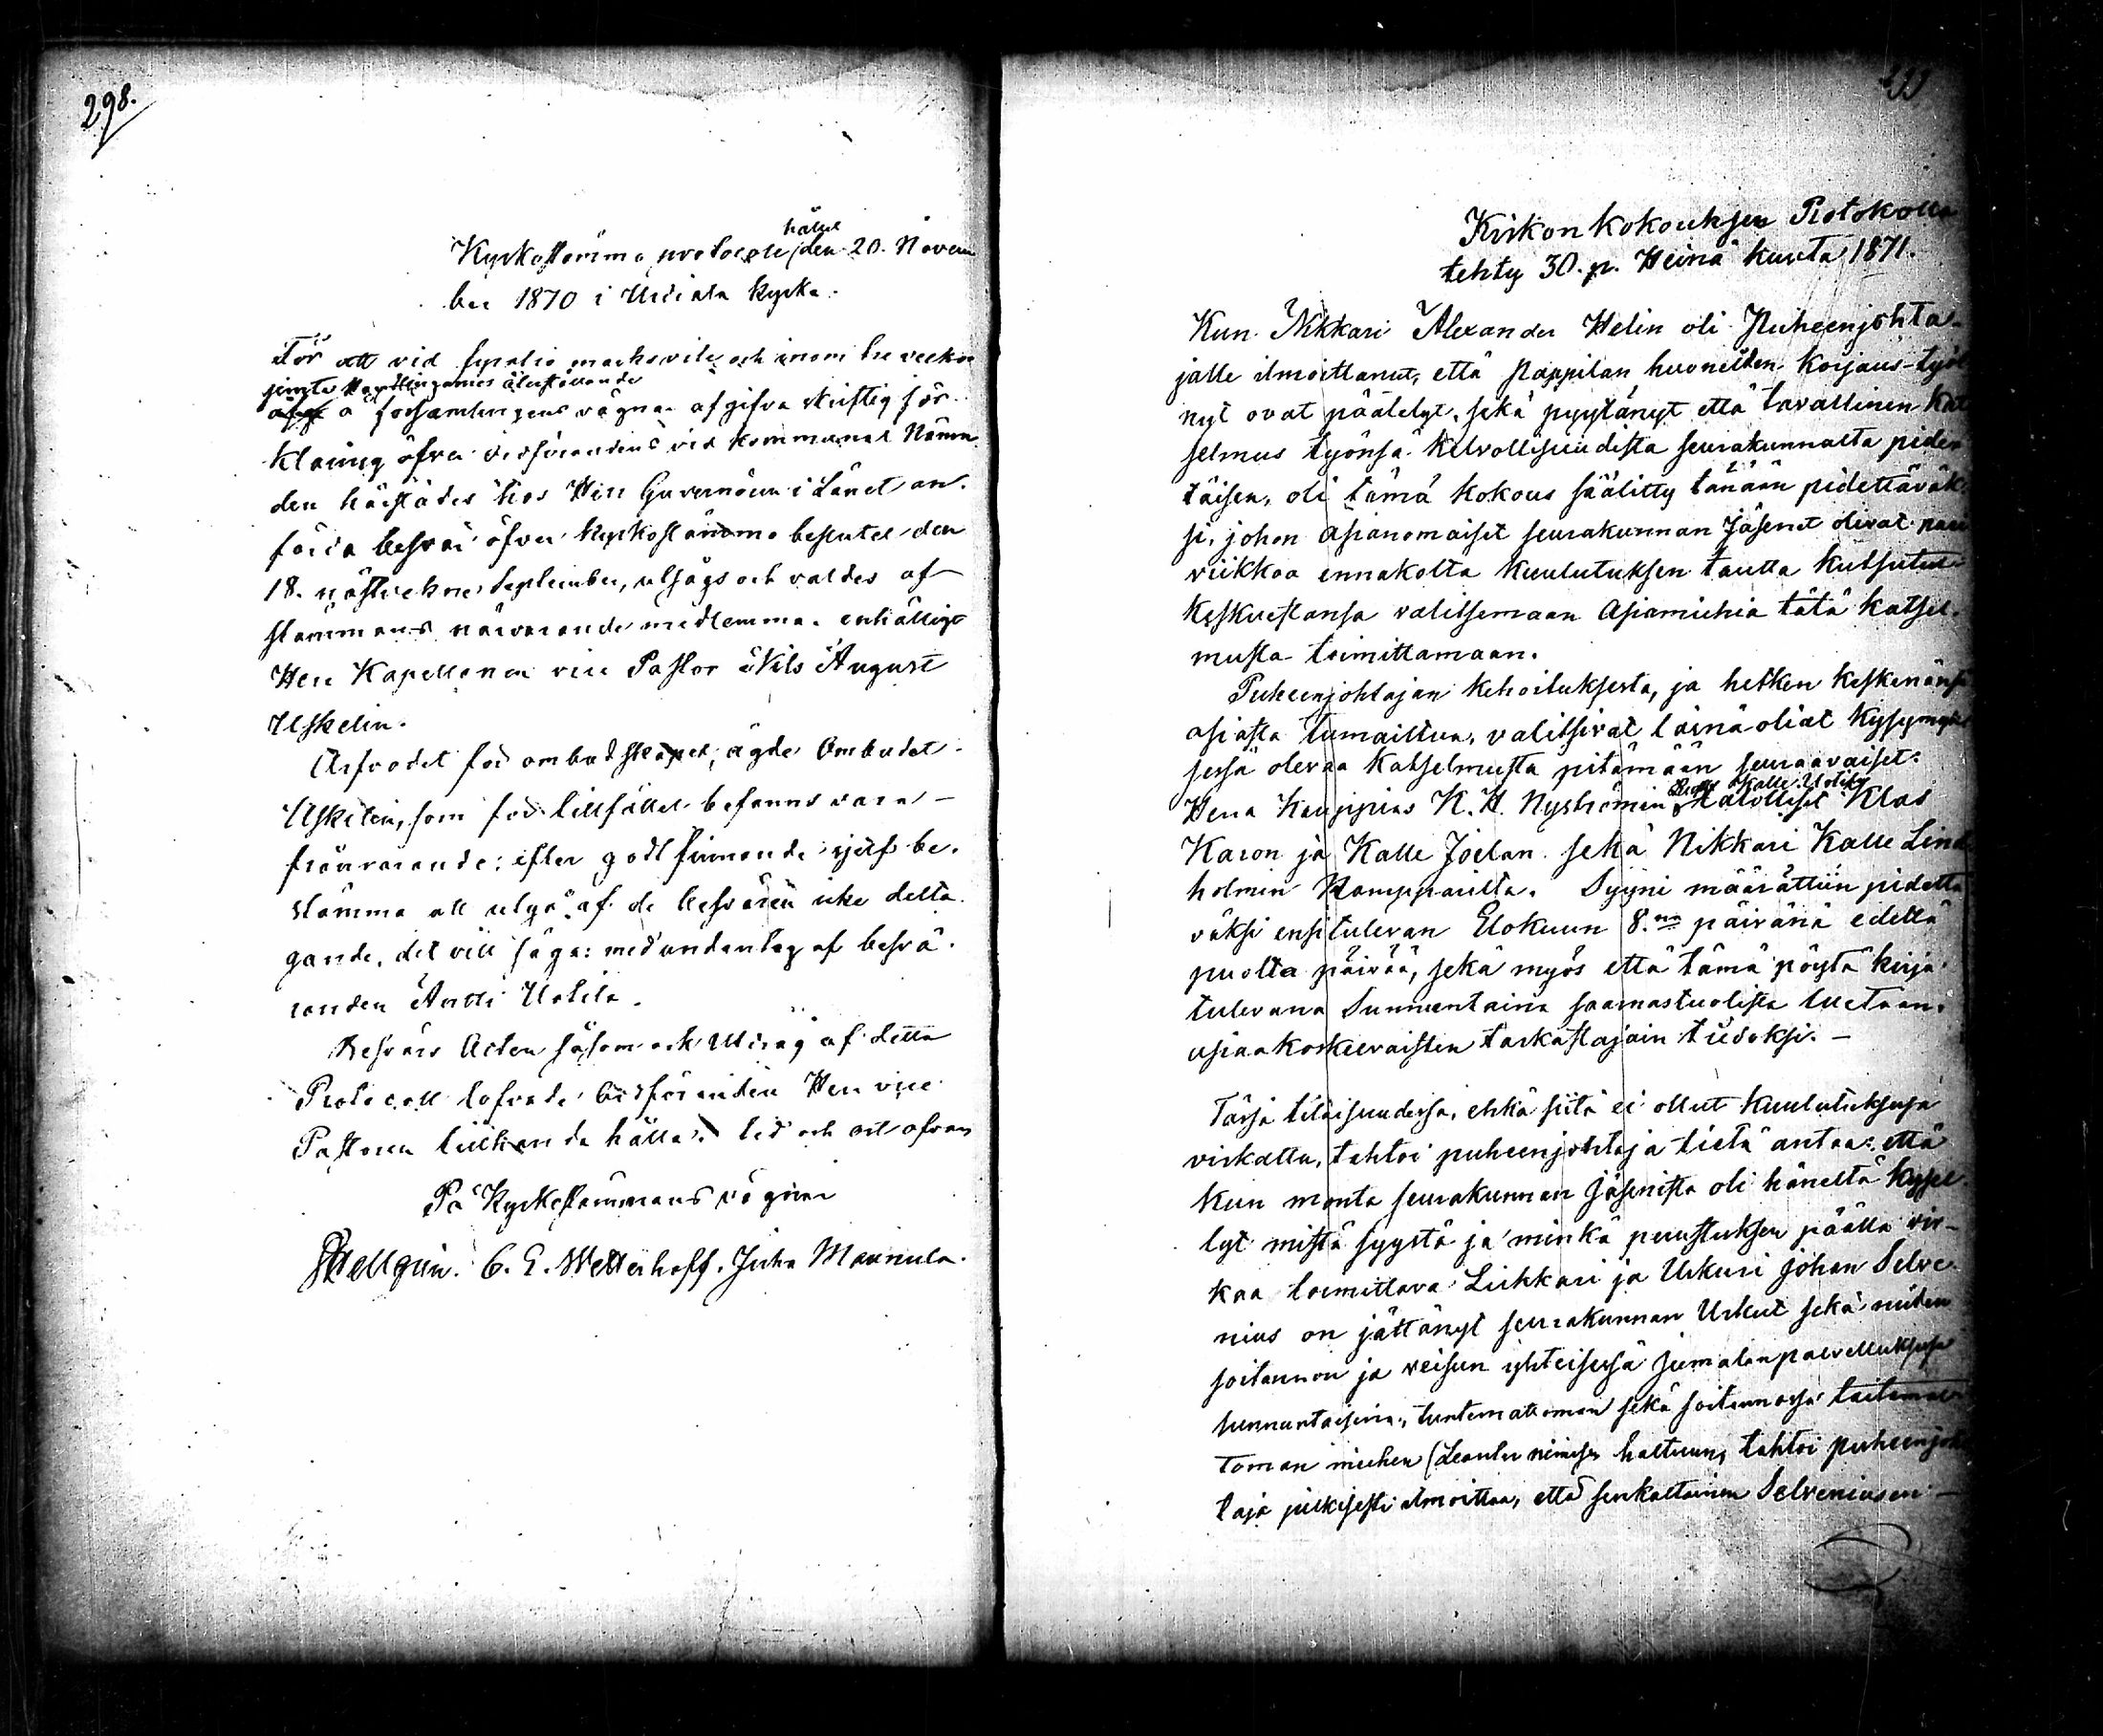 298.
hållet
Kyrkostämmo protocoll den 20. Novem
ber 1870 i Urdiala Kyrka.
För att vid laga och inom tre veckor
jemte Handlingarnes återställande
å församlingens vägnar afgifva skriftlig för-
klaring öfver vid kommunal Nämn
den härstädes hos Herr Guvernören i Länet an-
förda besvär öfver kyrkostämmo beslutet den
18. näst September, utsågs och valdes af
stämmans närvarande medlemmar enhälligt
Herr Kapellanen vice Pastor Nils August
Uskelin.
Arfvodet för ombudskapet, ägde Ombudet
Uskelin, som för tillfället befanns vara
frånvarande: efter godtfinnande sjelf be-
stämma att utgå af de besvären icke delta
gande, det vill säga: med undantag af besvä-
randen Antti Uotila.
Besvärs Acten såsom ock Utdrag af detta
Protocoll lofvade Ordföranden Herr vice
Pastoren tillhanda hålla. Tid och ort ofvan
På Kyrkostämmans vägnar
Hellgrén. C. E. Wetterhoff. Juha Mannula.
Kirkon kokouksen Protokolla
tehty 30. p. Heinä kuuta 1871.
Kun Nikkari Alexander Helin oli Puheenjohta-
jalle ilmoittanut, että Pappilan huoneitten Korjaus-työt
nyt ovat päätetyt, sekä pyytänyt että tavallinen Kat
selmus työnsä kelvollisuudesta seurakunnalta pidet
täisen, oli tämä kokous säälitty tänään pidettäväk
si, johon asianomaiset seurakunnan Jäsenet olivat pari
viikkoa ennakolta Kuulutuksen kautta kutsutut
Keskuestansa valitsemaan Asiamiehiä tätä katsel-
musta toimittamaan.
Puheenjohtajan Kehoituksesta, ja hetken Keskenänsä
asiasta tumailtua, valitsivat läsnä oliat Kysymyk
sessä olevaa Katselmusta pitämään seuraavaiset:
Kalle Uotila
Herra Kauppias K. H. Nyströmin Talolliset Klas
Karon ja Kalle Joelan sekä Nikkari Kalle Lind
holmin Kamppaalta. Syyni määrättiin pidettä
väksi ensitulevan Elokuun 8.na päivänä edellä
puolta päivää, sekä myös että tämä pöytä kirja
tulevana Sunnuntaina saarnastuolista luetaan
asiaakoskevaisten tarkastajain tiedoksi. -
Tässä tilaisuudessa, ehkä siitä ei ollut Kuulutuksessa
virkattu, tahtoi puheenjohtaja tietä antaa: että
Kun monta seurakunnan Jäsenistä oli häneltä kysel
lyt mistä syystä ja minkä puustuksen päällä vir-
kaa toimittava Lukkari ja Urkuri Johan Selve-
nius on jättänyt seurakunnan Urkut sekä niiden
soitannon ja veisun yhteisessä jumalanpalvelluksessa
sunnuntaisina, tuntemattoman sekä soitannossa taitamat
toman miehen (Leander nimisen haltuun, tahtoi puheenjoh
taja julkisesti ilmoittaa, että senkaltainen Selveniusen -